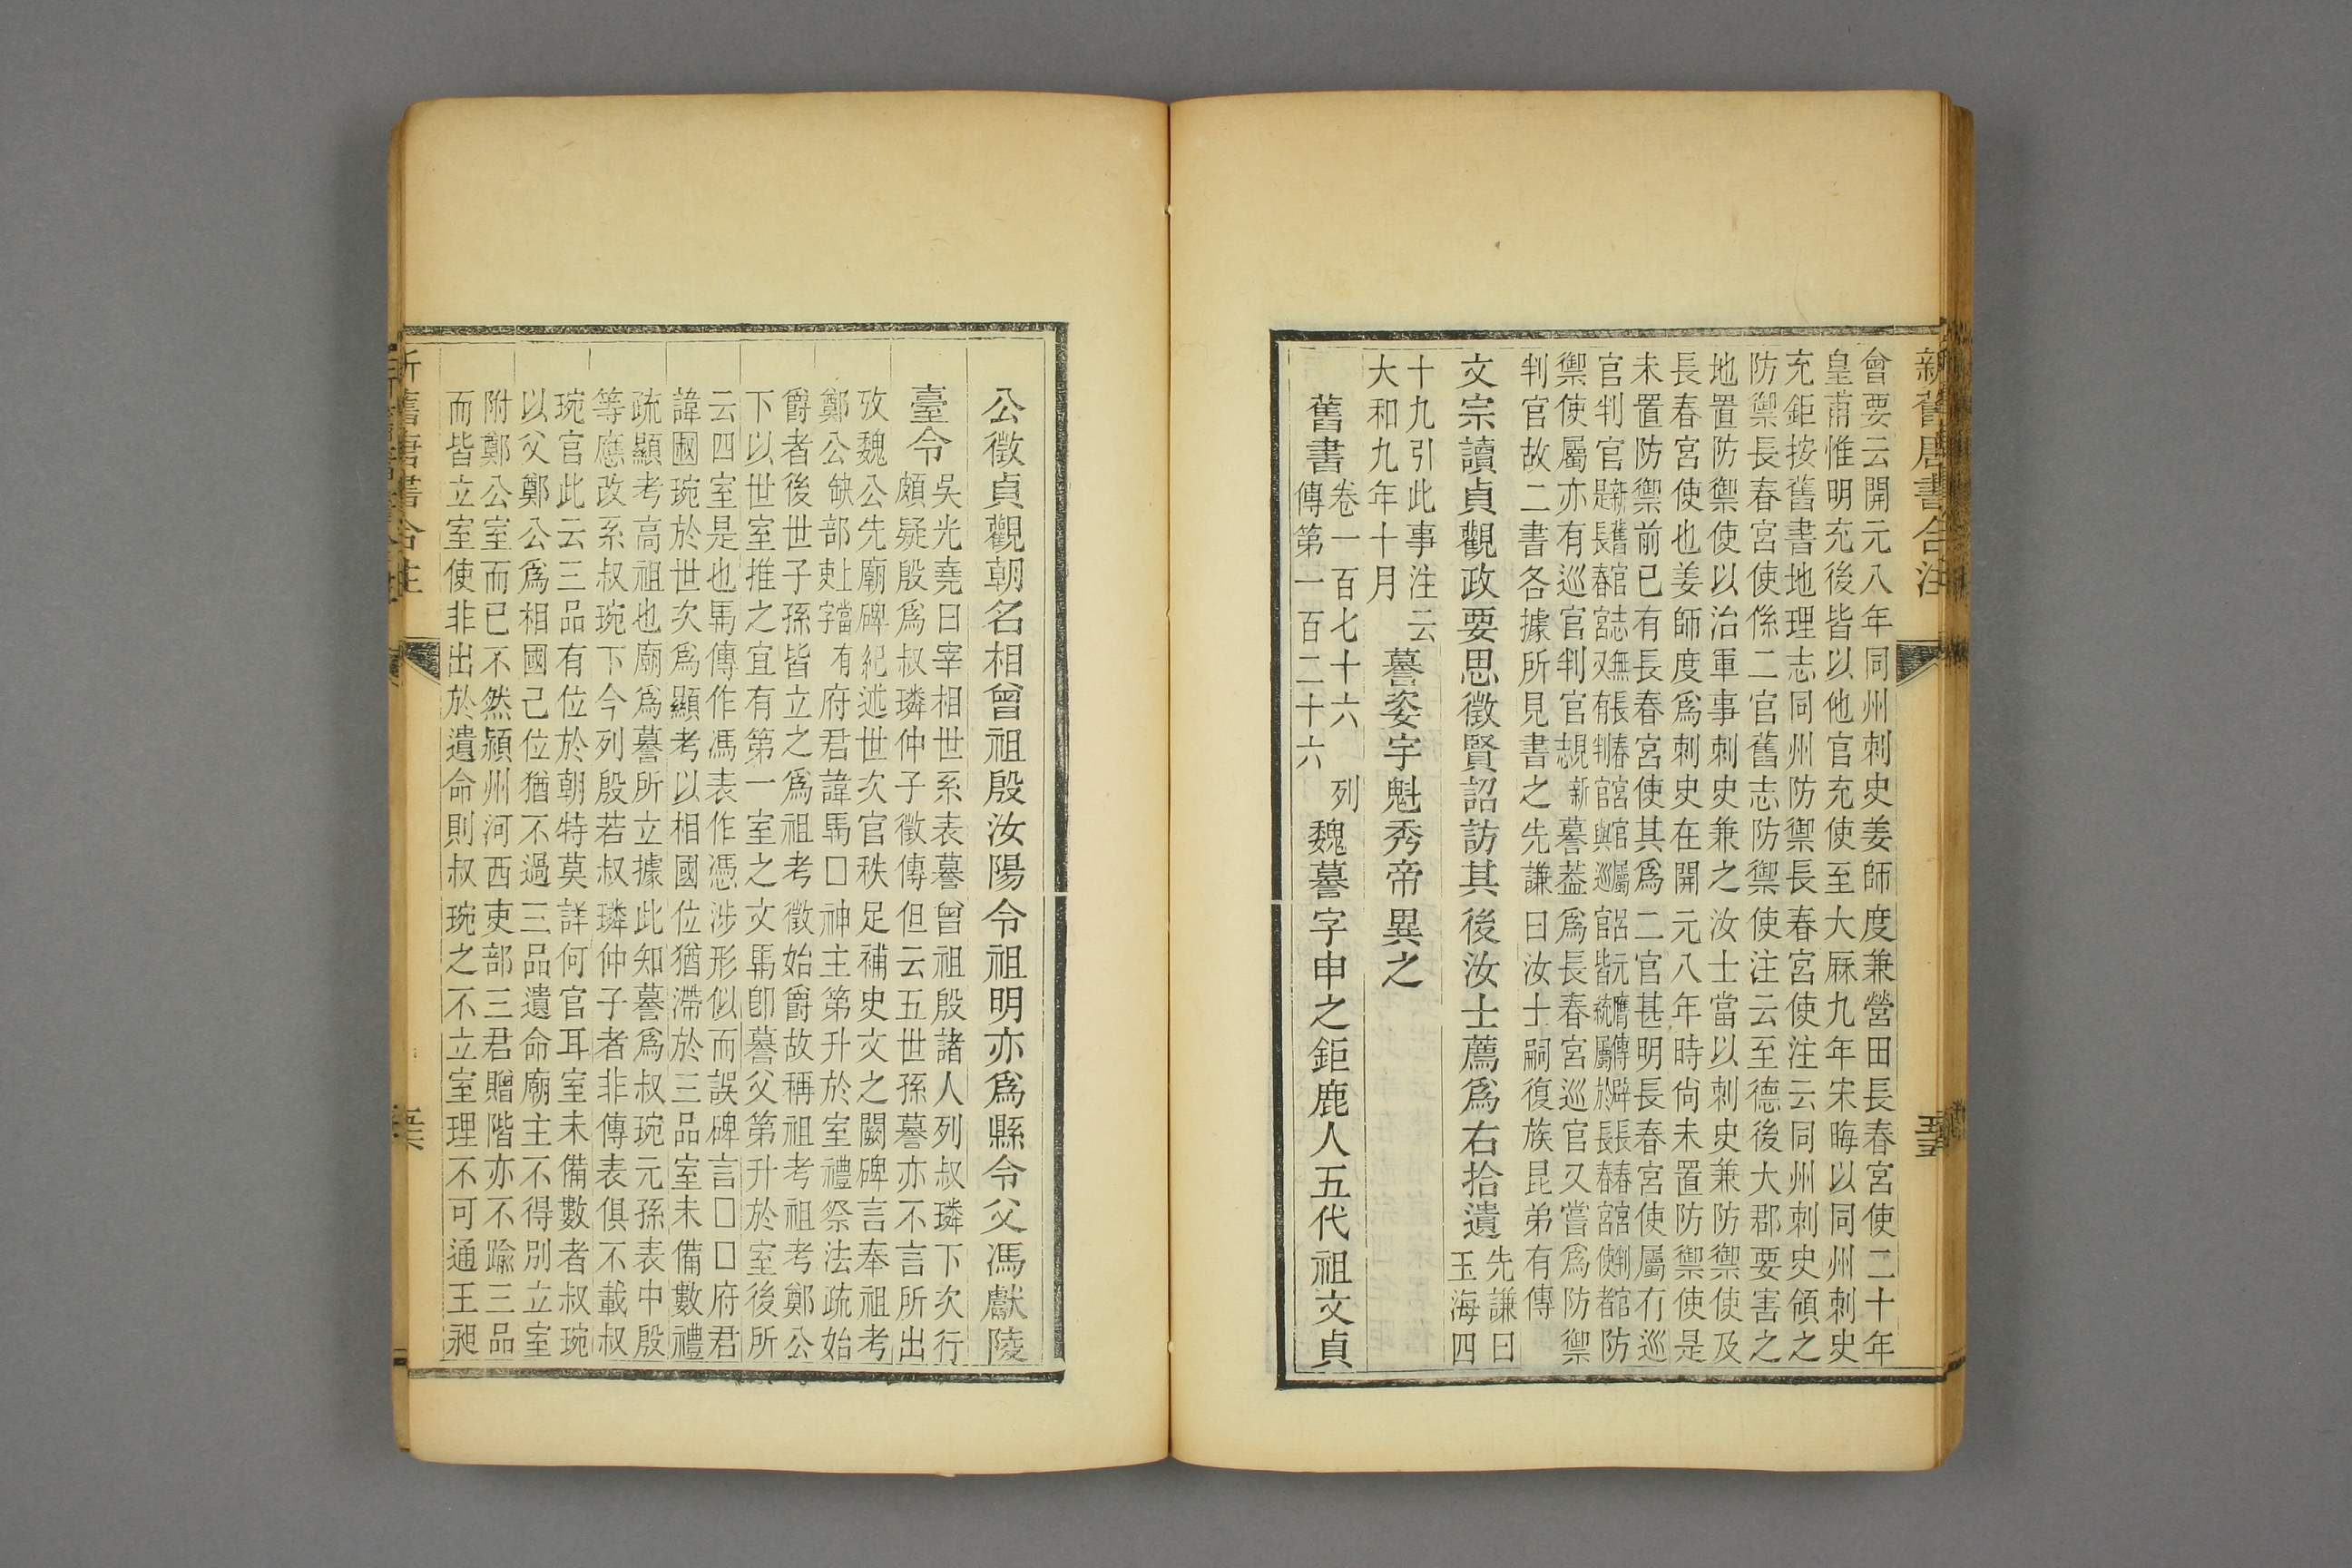 新舊唐書合注
會要云開元八年同州刺史姜師度兼營田長春宮使二十年
皇甫惟明充後皆以他官充使至大厤九年宋晦以同州刺史
充鉅按舊書地理志同州防禦長春宮使注云同州刺史領之
防禦長春宮使係二官舊志防禦使注云至德後大郡要害之
地置防禦使以治軍事刺史兼之汝士當以刺史兼防禦使及
長春宮使也姜師度爲刺史在開元八年時尚未置防禦使是
未置防禦前已有長春宮使其爲二官甚明長春宮使屬有巡
官判官
禦使屬亦有巡官判官
判官故二書各據所見書之先謙曰汝士嗣復族昆弟有傳
文宗讀貞觀政要思徵賢詔訪其後汝士薦爲右拾遺先謙曰
玉海四
十九引此事注云
大和九年十月
謩姿宇魁秀帝異之
舊書卷一百七十六 列
傳第一百二十六
魏謩字申之鉅鹿人五代祖文貞
公徵貞觀朝名相曾祖殷汝陽令祖明亦爲縣令父馮獻陵
臺令吳光堯曰宰相世系表謩曾祖殷諸人列叔璘下次行
頗疑殷爲叔璘仲子徵傳但云五世孫謩亦不言所出
攷魏公先廟碑紀述世次官秩足補史文之闕碑言奉祖考
鄭公缺部上當有吏字府君諱馮□神主第升於室禮祭法疏始
爵者後世子孫皆立之爲祖考徵始爵故稱祖考祖考鄭公
下以世室推之宜有第一室之文馮卽謩父第升於室後所
云四室是也馮傳作馮表作憑涉形似而誤碑言□□府君
諱國琬於世次爲顯考以相國位猶滯於三品室未備數禮
疏顯考高祖也廟爲謩所立據此知謩爲叔琬元孫表中殷
等應改系叔琬下今列殷若叔璘仲子者非傳表俱不載叔
琬官此云三品有位於朝特莫詳何官耳室未備數者叔琬
以父鄭公爲相國己位猶不過三品遺命廟主不得別立室
附鄭公室而已不然潁州河西吏部三君贈階亦不踰三品
而皆立室使非出於遺命則叔琬之不立室理不可通王昶